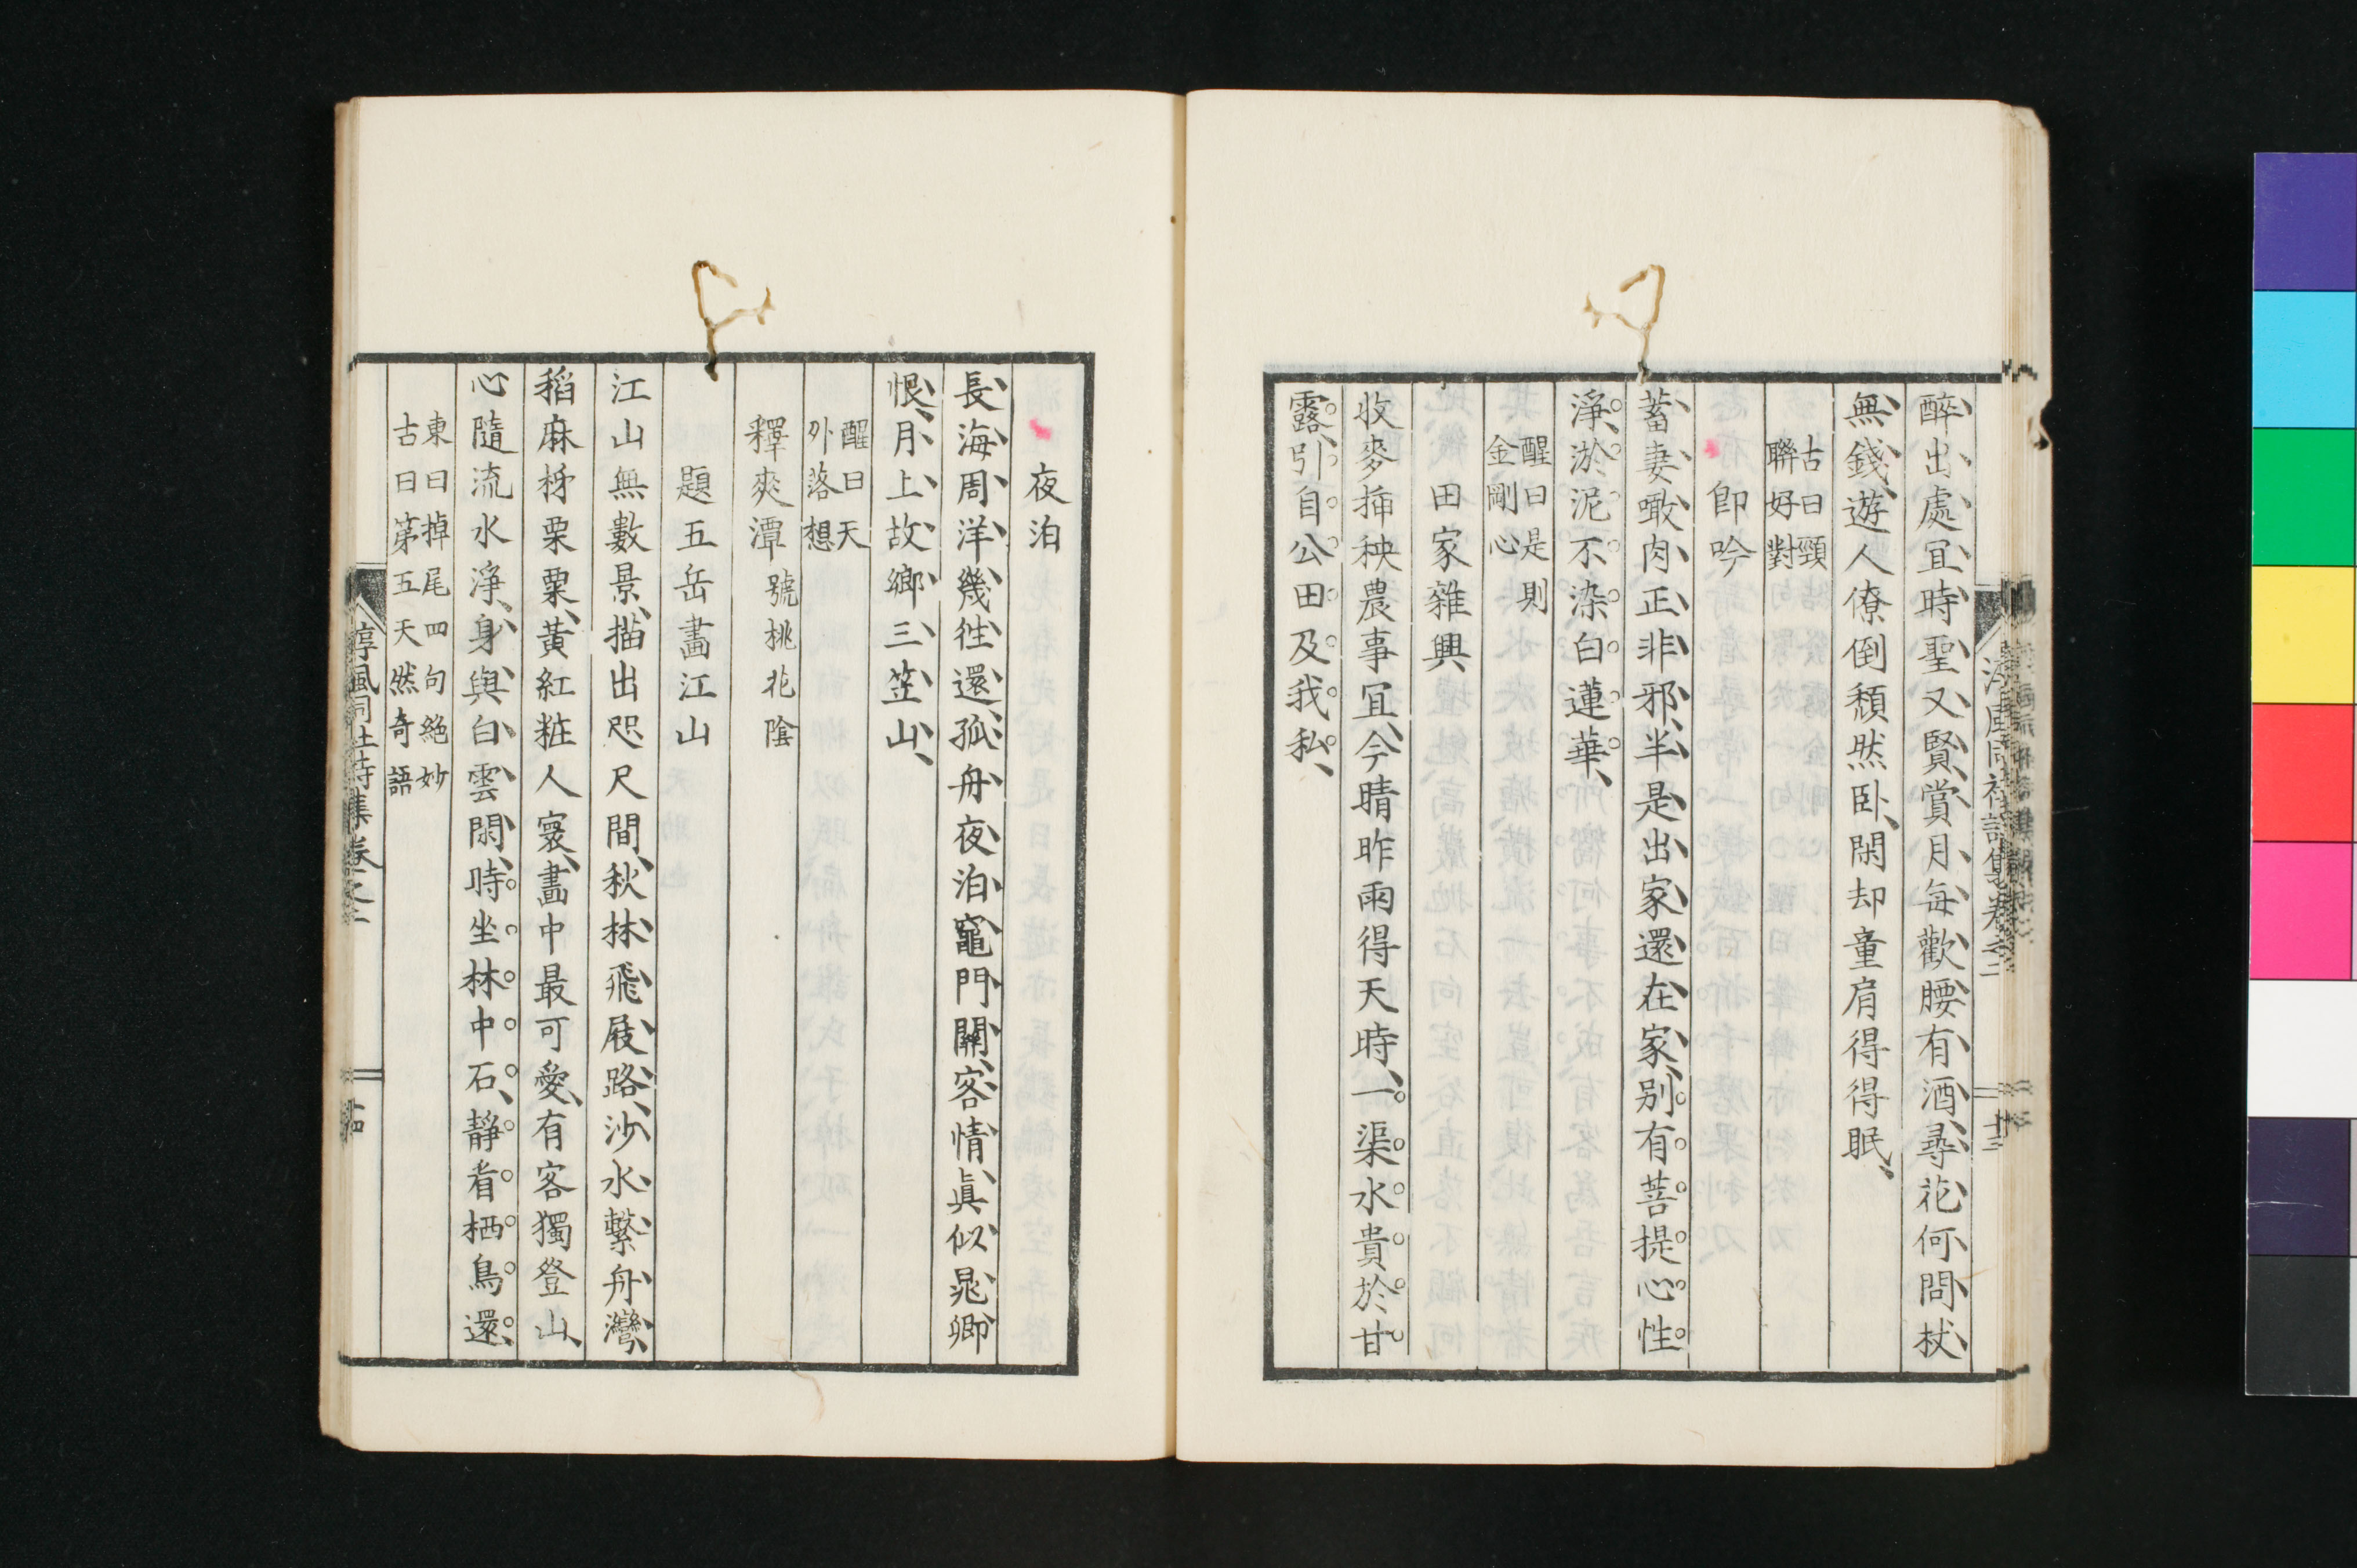 醉出處宜時聖又賢、賞月每歡腰有酒、尋花何問杖
無錢、遊人僚倒頹然臥、閑却童肩得得眠、
古曰頸
聯好對
卽吟
蓄妻噉肉正非邪、半是出家還在家、別有菩提心性
淨、淤泥不染白蓮華、
醒曰是則
金剛心
田家雜興
收麥揷秧農事宜、今晴昨雨得天時、一渠水貴於甘
露、引自公田及我私、
夜泊
長海周洋幾徃還、孤舟夜泊竈門關、客情眞似晁卿
恨、月上故鄉三笠山、
醒曰天
外落想
釋爽潭號桃花陰
題五岳畵江山
江山無數景、描出咫尺間、秋林飛屐路、沙水繫舟灣、
稻麻桙栗粟、黃紅粧人寰、畵中最可愛、有客獨登山、
心隨流水淨、身與白雲閑、時坐林中石、静看栖鳥還、
東曰掉尾四句絕妙
古曰第五天然奇語
淳風同社詩集卷之二